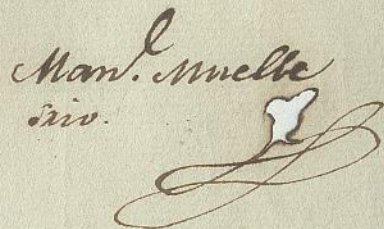 Man.l Muelle
srio.